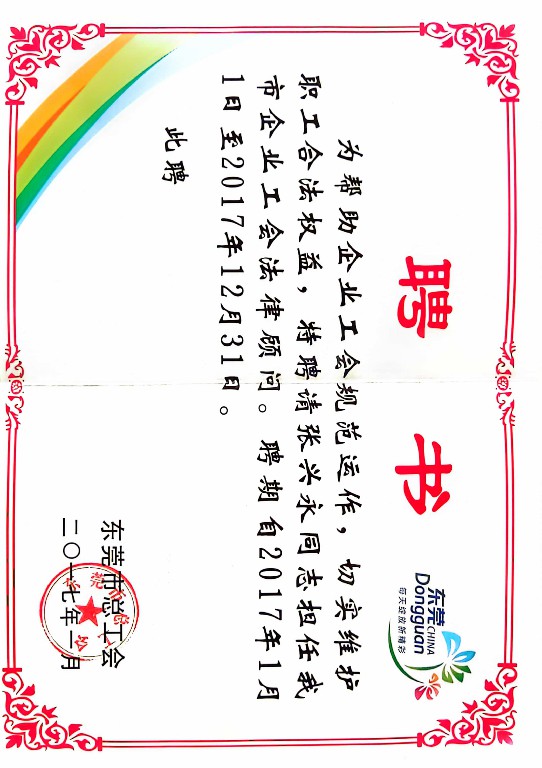 聘 书
东莞 CHINA
Dongguan
每天绽放新精彩
为帮助企业工会规范运作，切实维护
职工合法权益，特聘请张兴永同志担任我
市企业工会法律顾问。聘期自2017年1月
1日至2017年12月31日。
此聘
东莞市总工会
二〇一七年一月